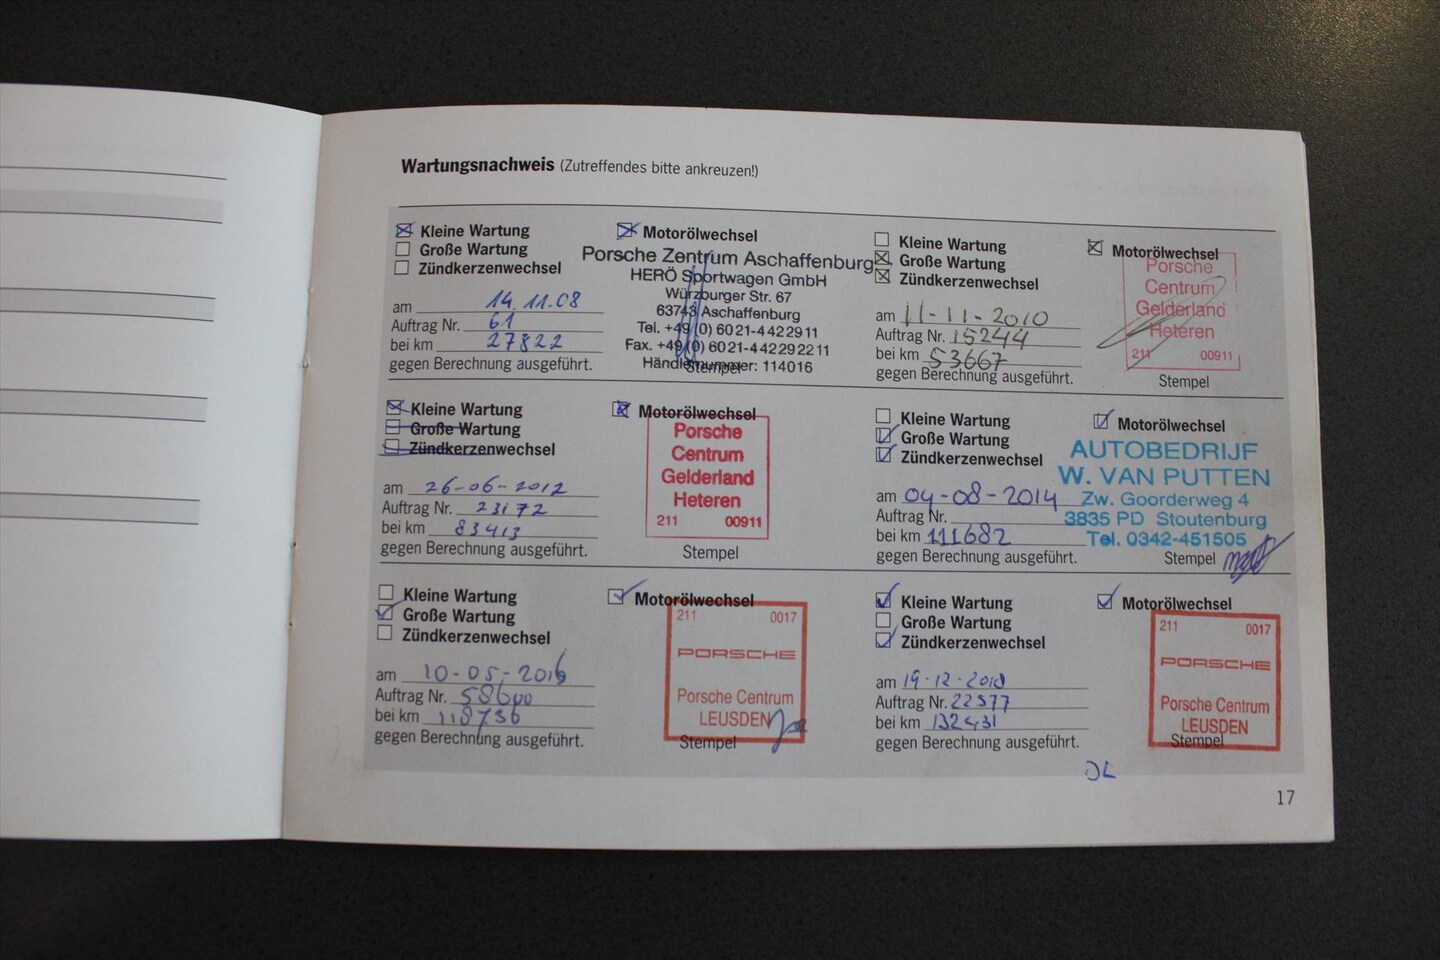 Wartungsnachweis (Zutreffendes bitte ankreuzen!)
Kleine Wartung
Große Wartung
Zündkerzenwechsel
Motorölwechsel
Porsche Zentrum Aschaffenburg
HERÖ Sportwagen GmbH
Würzburger Str. 67
63743 Aschaffenburg
Tel. +49 (0) 6021-4422911
Fax. +49 (0) 6021-442292211
Händlernummer: 114016
Stempel
am 14.11.08
Auftrag Nr. 61
bei km 27822
gegen Berechnung ausgeführt.
Kleine Wartung
Große Wartung
Zündkerzenwechsel
Motorölwechsel
Porsche
Centrum
Gelderland
Heteren
211 00911
Stempel
am 11-11-2010
Auftrag Nr. 15244
bei km 53667
gegen Berechnung ausgeführt.
Kleine Wartung
Große Wartung
Zündkerzenwechsel
Motorölwechsel
Porsche
Centrum
Gelderland
Heteren
211 00911
Stempel
am 26-06-2012
Auftrag Nr. 23172
bei km 83413
gegen Berechnung ausgeführt.
Kleine Wartung
Große Wartung
Zündkerzenwechsel
Motorölwechsel
AUTOBEDRIJF
W. VAN PUTTEN
Zw. Goorderweg 4
3835 PD Stoutenburg
Tel. 0342-451505
Stempel
am 04-08-2014
Auftrag Nr.
bei km 111682
gegen Berechnung ausgeführt.
Kleine Wartung
Große Wartung
Zündkerzenwechsel
Motorölwechsel
211 0017
PORSCHE
Porsche Centrum
LEUSDEN
Stempel
am 10-05-2016
Auftrag Nr. 58600
bei km 118736
gegen Berechnung ausgeführt.
Kleine Wartung
Große Wartung
Zündkerzenwechsel
Motorölwechsel
211 0017
PORSCHE
Porsche Centrum
LEUSDEN
Stempel
am 19-12-2018
Auftrag Nr. 22377
bei km 132431
gegen Berechnung ausgeführt.
DL
17